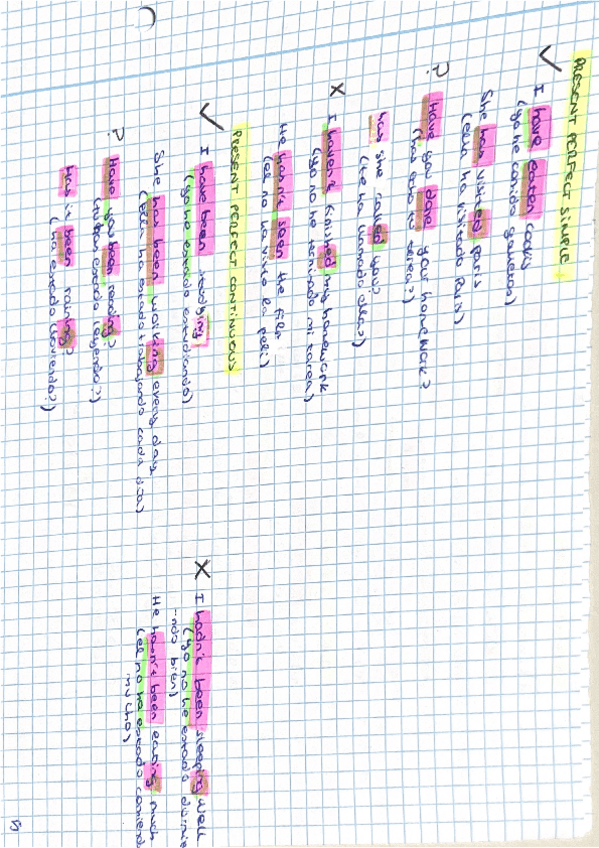 PRESENT PERFECT SIMPLE
✓ I have eaten cookis
(yo he comido galletas)
She has visited paris
(ella ha visitado París)
? Have you done your homework?
(has echo tu tarea?)
has she called you?
(te ha llamado ella?)
x I haven't finished my homework
(yo no he terminado mi tarea)
He hasn't seen the film
(el no ha visto la peli)
PRESENT PERFECT CONTINUOUS
✓ I have been studying
(yo he estado estudiando)
She has been working every day
(ella ha estado trabajando cada día)
? Have you been reading?
(tu has estado leyendo?)
Has it been raining?
(ha estado lloviendo?)
x I hadn't been sleeping well
(yo no he estado durmie
-ndo bien)
He hasn't been eating much
(el no ha estado comiendo
mucho)
5